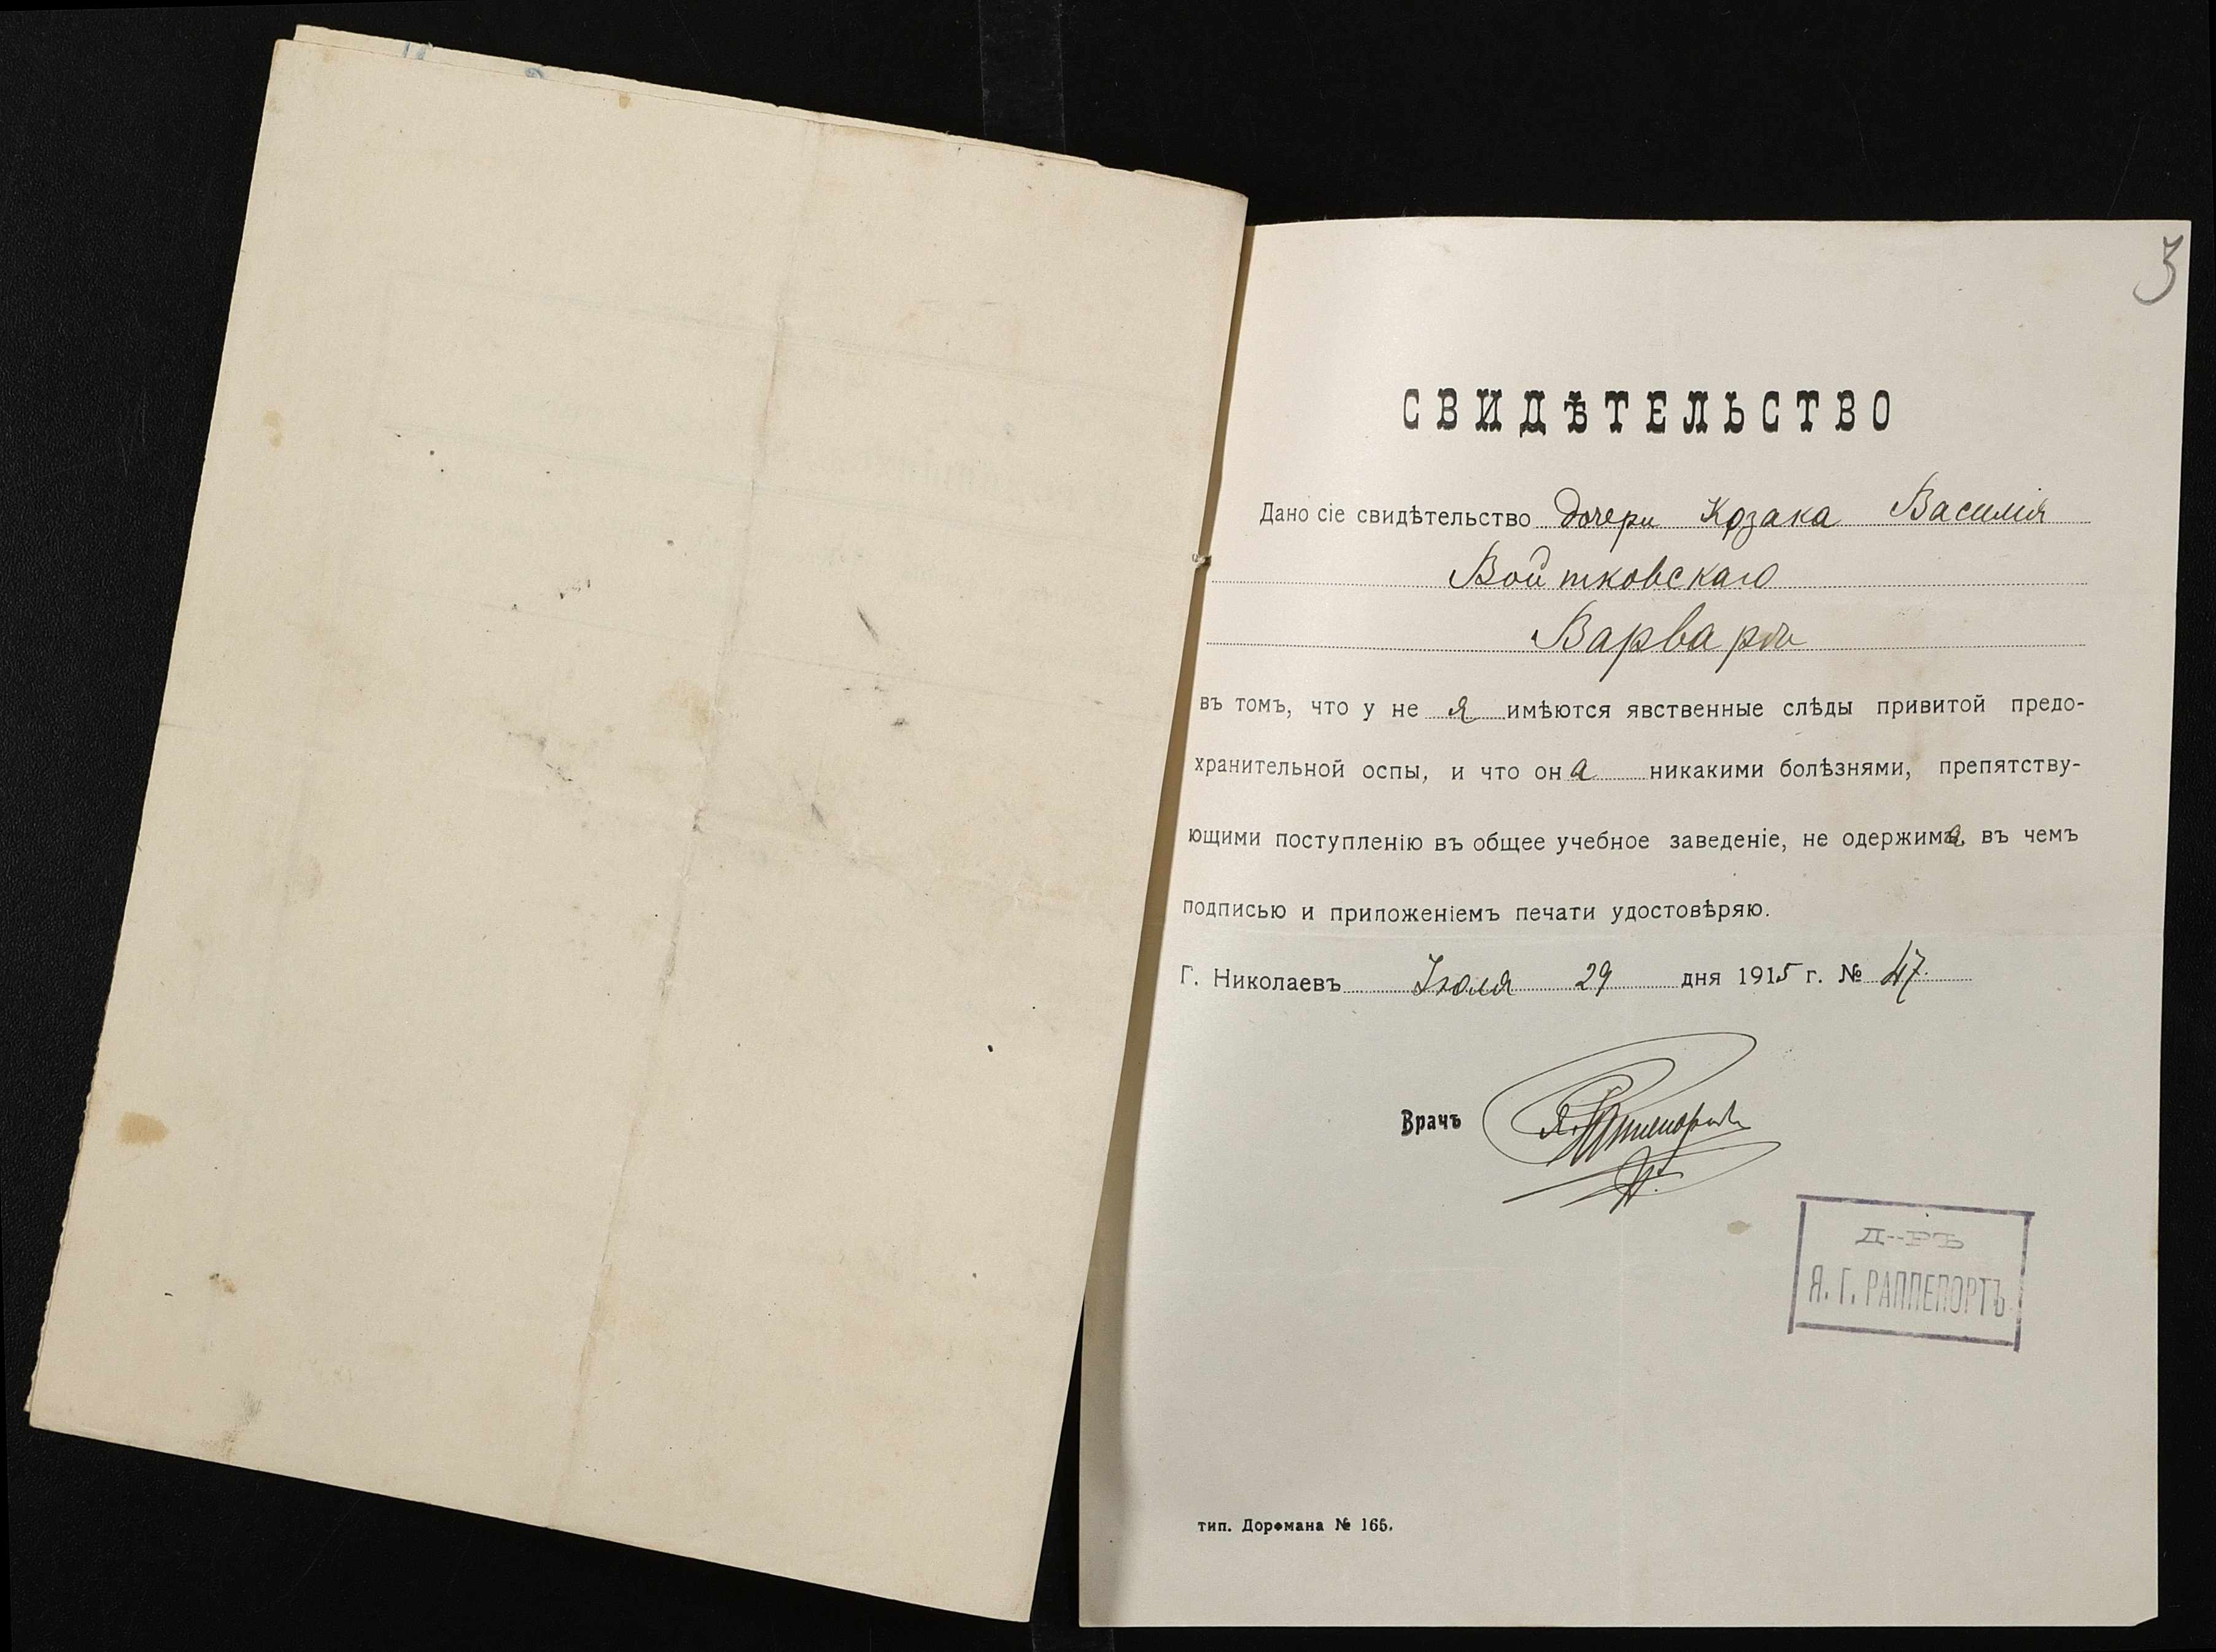 3
СВИДѢТЕЛЬСТВО
Дано сіе свидѣтельство дочери Козака Василія
Войтковскаго
Варвары
въ томъ, что у не я имѣются явственные слѣды привитой предо-
хранительной оспы, и что она никакими болѣзнями, препятству-
ющими поступленію въ общее учебное заведеніе, не одержима, въ чемъ
подписью и приложеніемъ печати удостовѣряю.
Г. Николаевъ Іюля 29 дня 1915 г. № 47.
Врачъ Я. Раппепортъ
Д-РЪ
Я. Г. РАППЕПОРТЪ
тип. Дорфмана № 165.